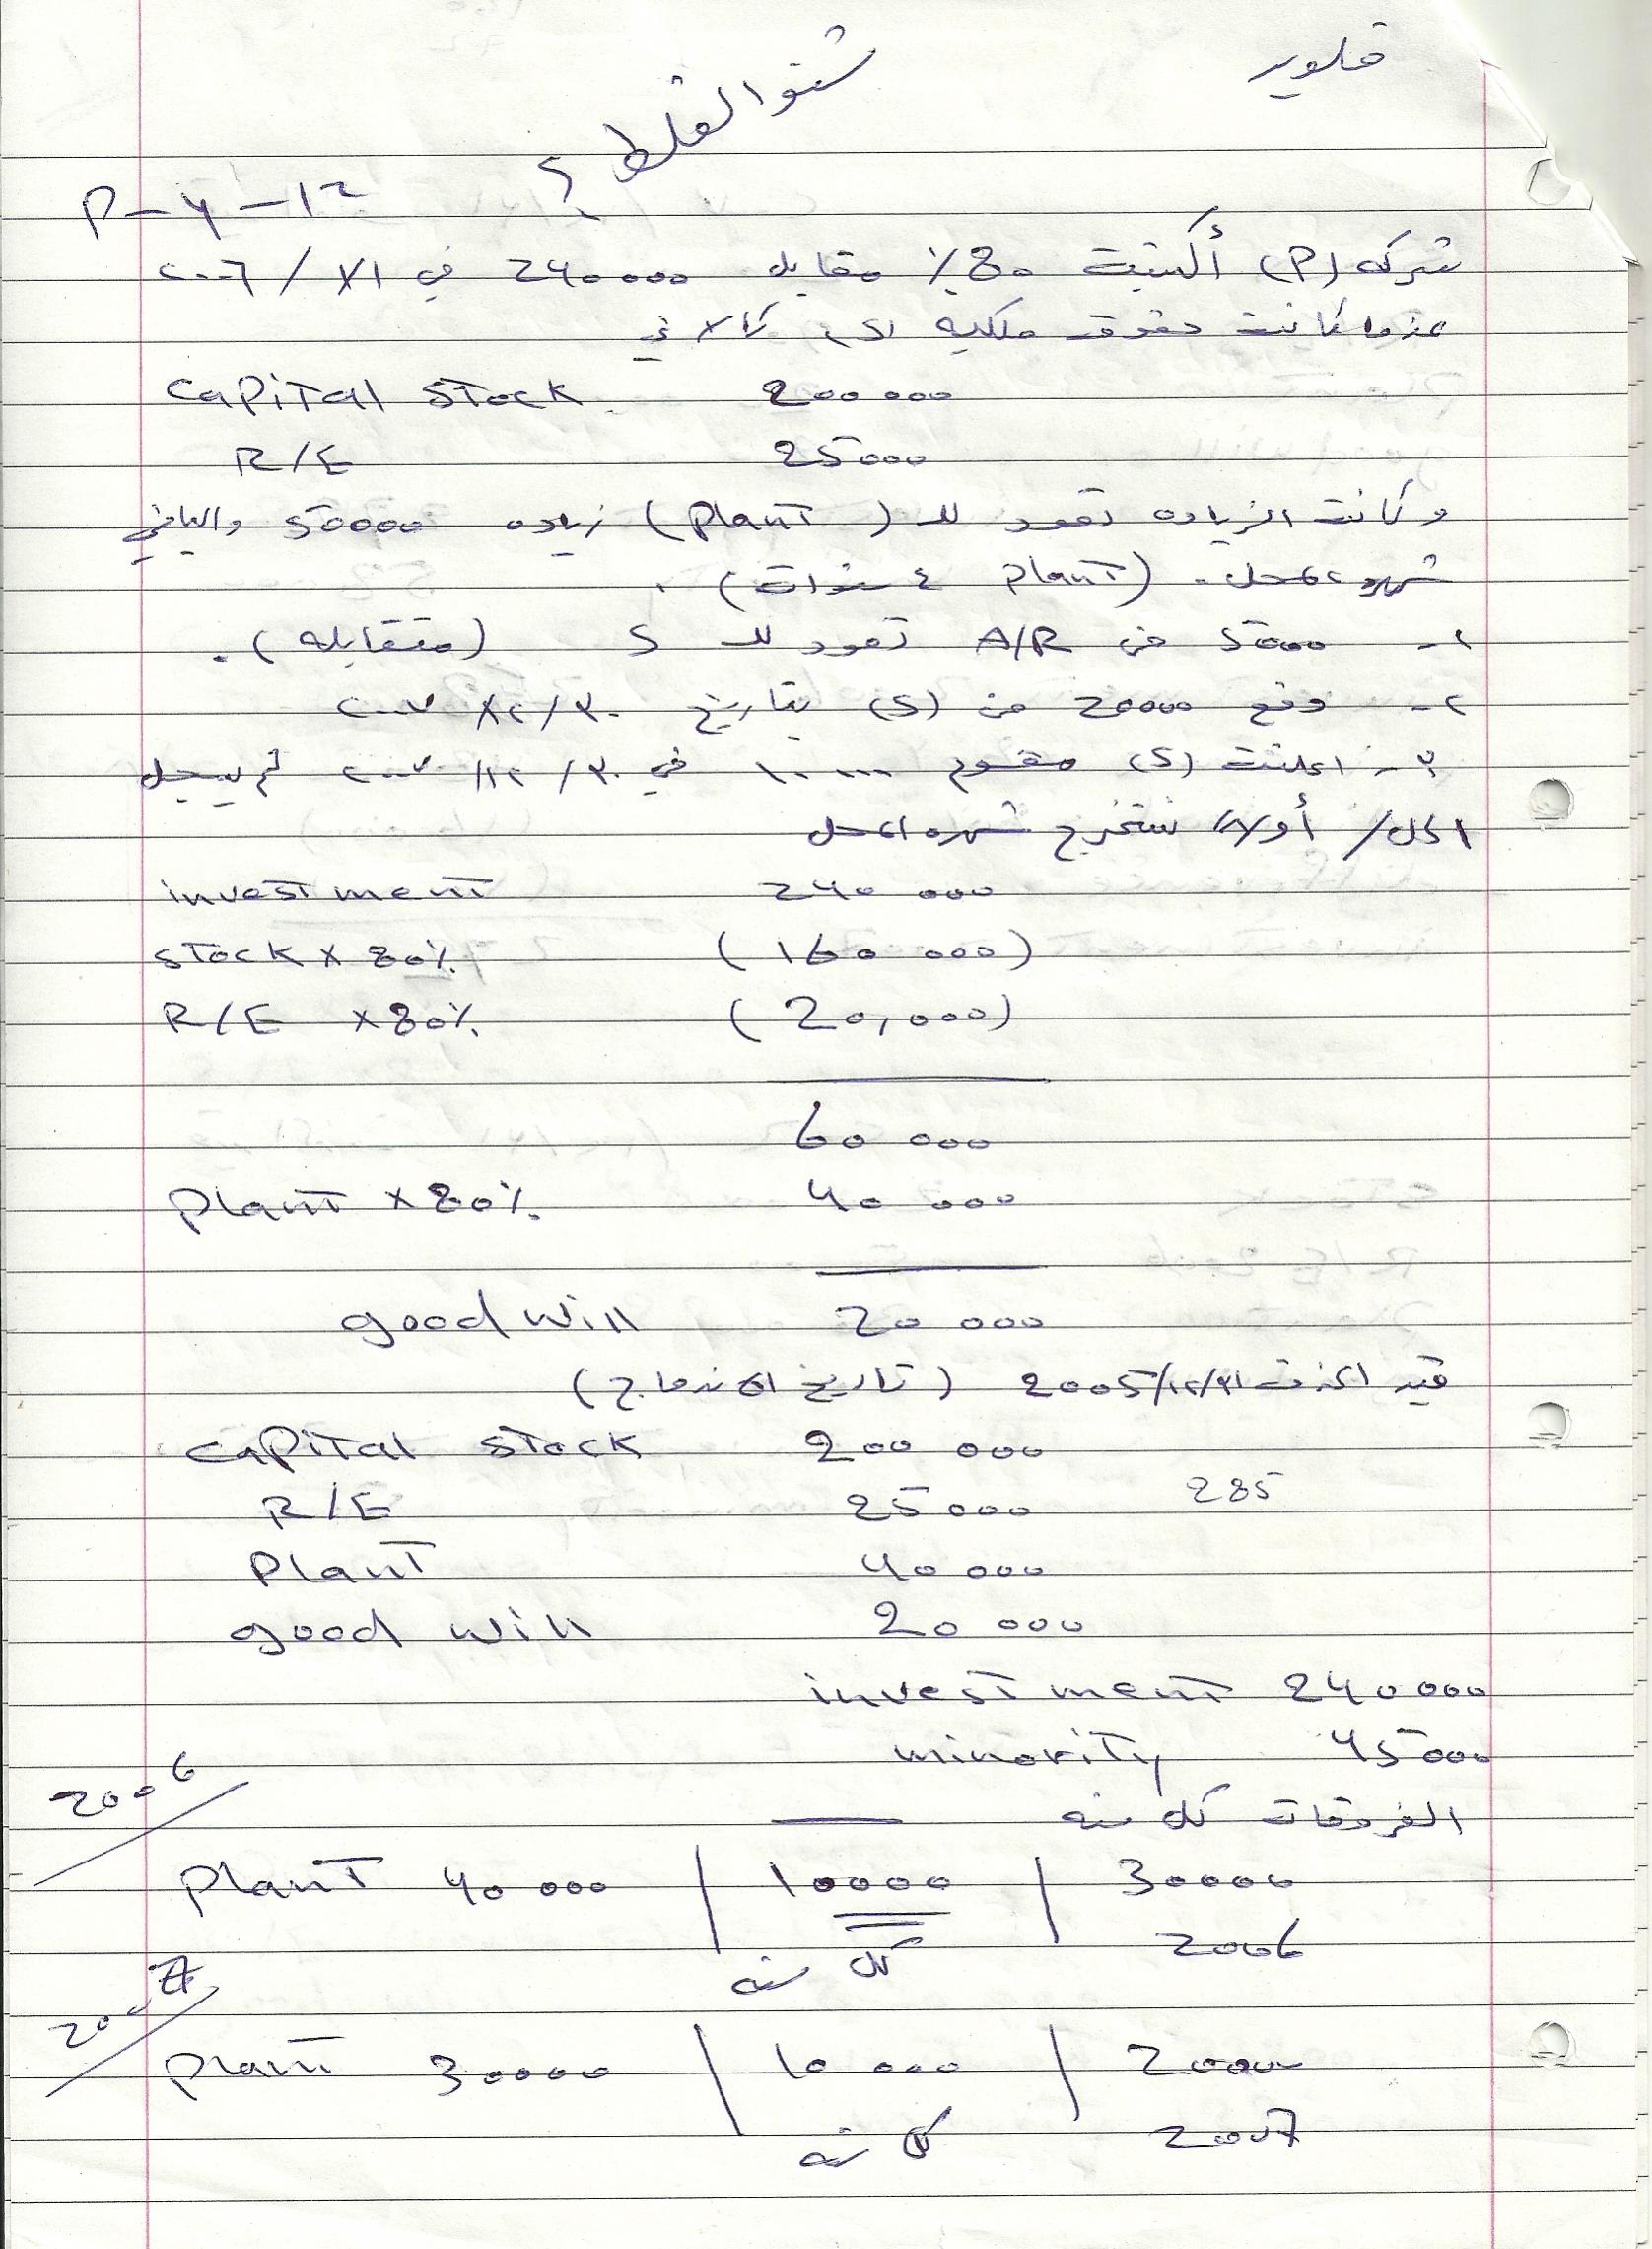 شنو الغلط ؟
P-4-12
شركه (P) أكتبت 80٪ مقابل 240000 في ١/١/٢٠٠٦
عندما كانت حقوق ملكيه (S) كالاتي
capital stock 200 000
R/E 25000
وكانت الزياده تعود لل (plant) زياده 50000 والباقي
شهره محل. (plant ٤ سنوات).
١- 5000 من A/R تعود لل S (متقابله).
٢- دفع 20000 من (S) بتاريخ ٣٠/١٢/٢٠٠٧
٣- اعلنت (S) مقسوم ١٠٠٠٠ في ٣٠/١٢/٢٠٠٧ لم يسجل
الحل/ أولاً نستخرج شهره المحل
investment 240 000
stock x 80٪ (160 000)
R/E x80٪ (20,000)
60 000
plant x80٪ 40 000
good will 20 000
قيد الحذف ٣١/١٢/2005 (تاريخ الاندماج)
capital stock 200 000
R/E 25 000 285
plant 40 000
good will 20 000
investment 240000
minority 45000
2006
الفروقات كل سنه
plant 40 000 | 10000 | 30000
كل سنه 2006
2007
plant 30000 | 10 000 | 20000
كل سنه 2007